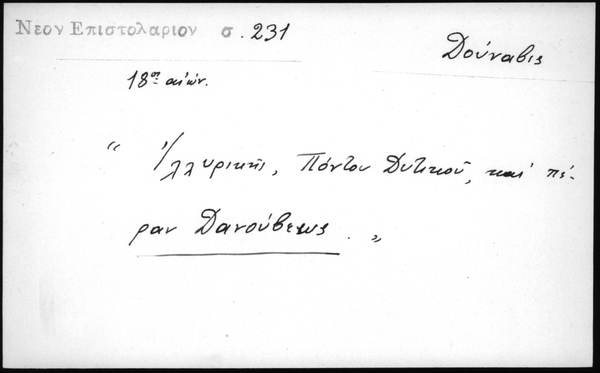 Νεον Επιστολαριον σ. 231
Δούναβις
18ος αἰών.
“ Ἰλλυρικῆς, Πόντου Δυτικοῦ, καὶ πέ-
ραν Δανούβεως. „